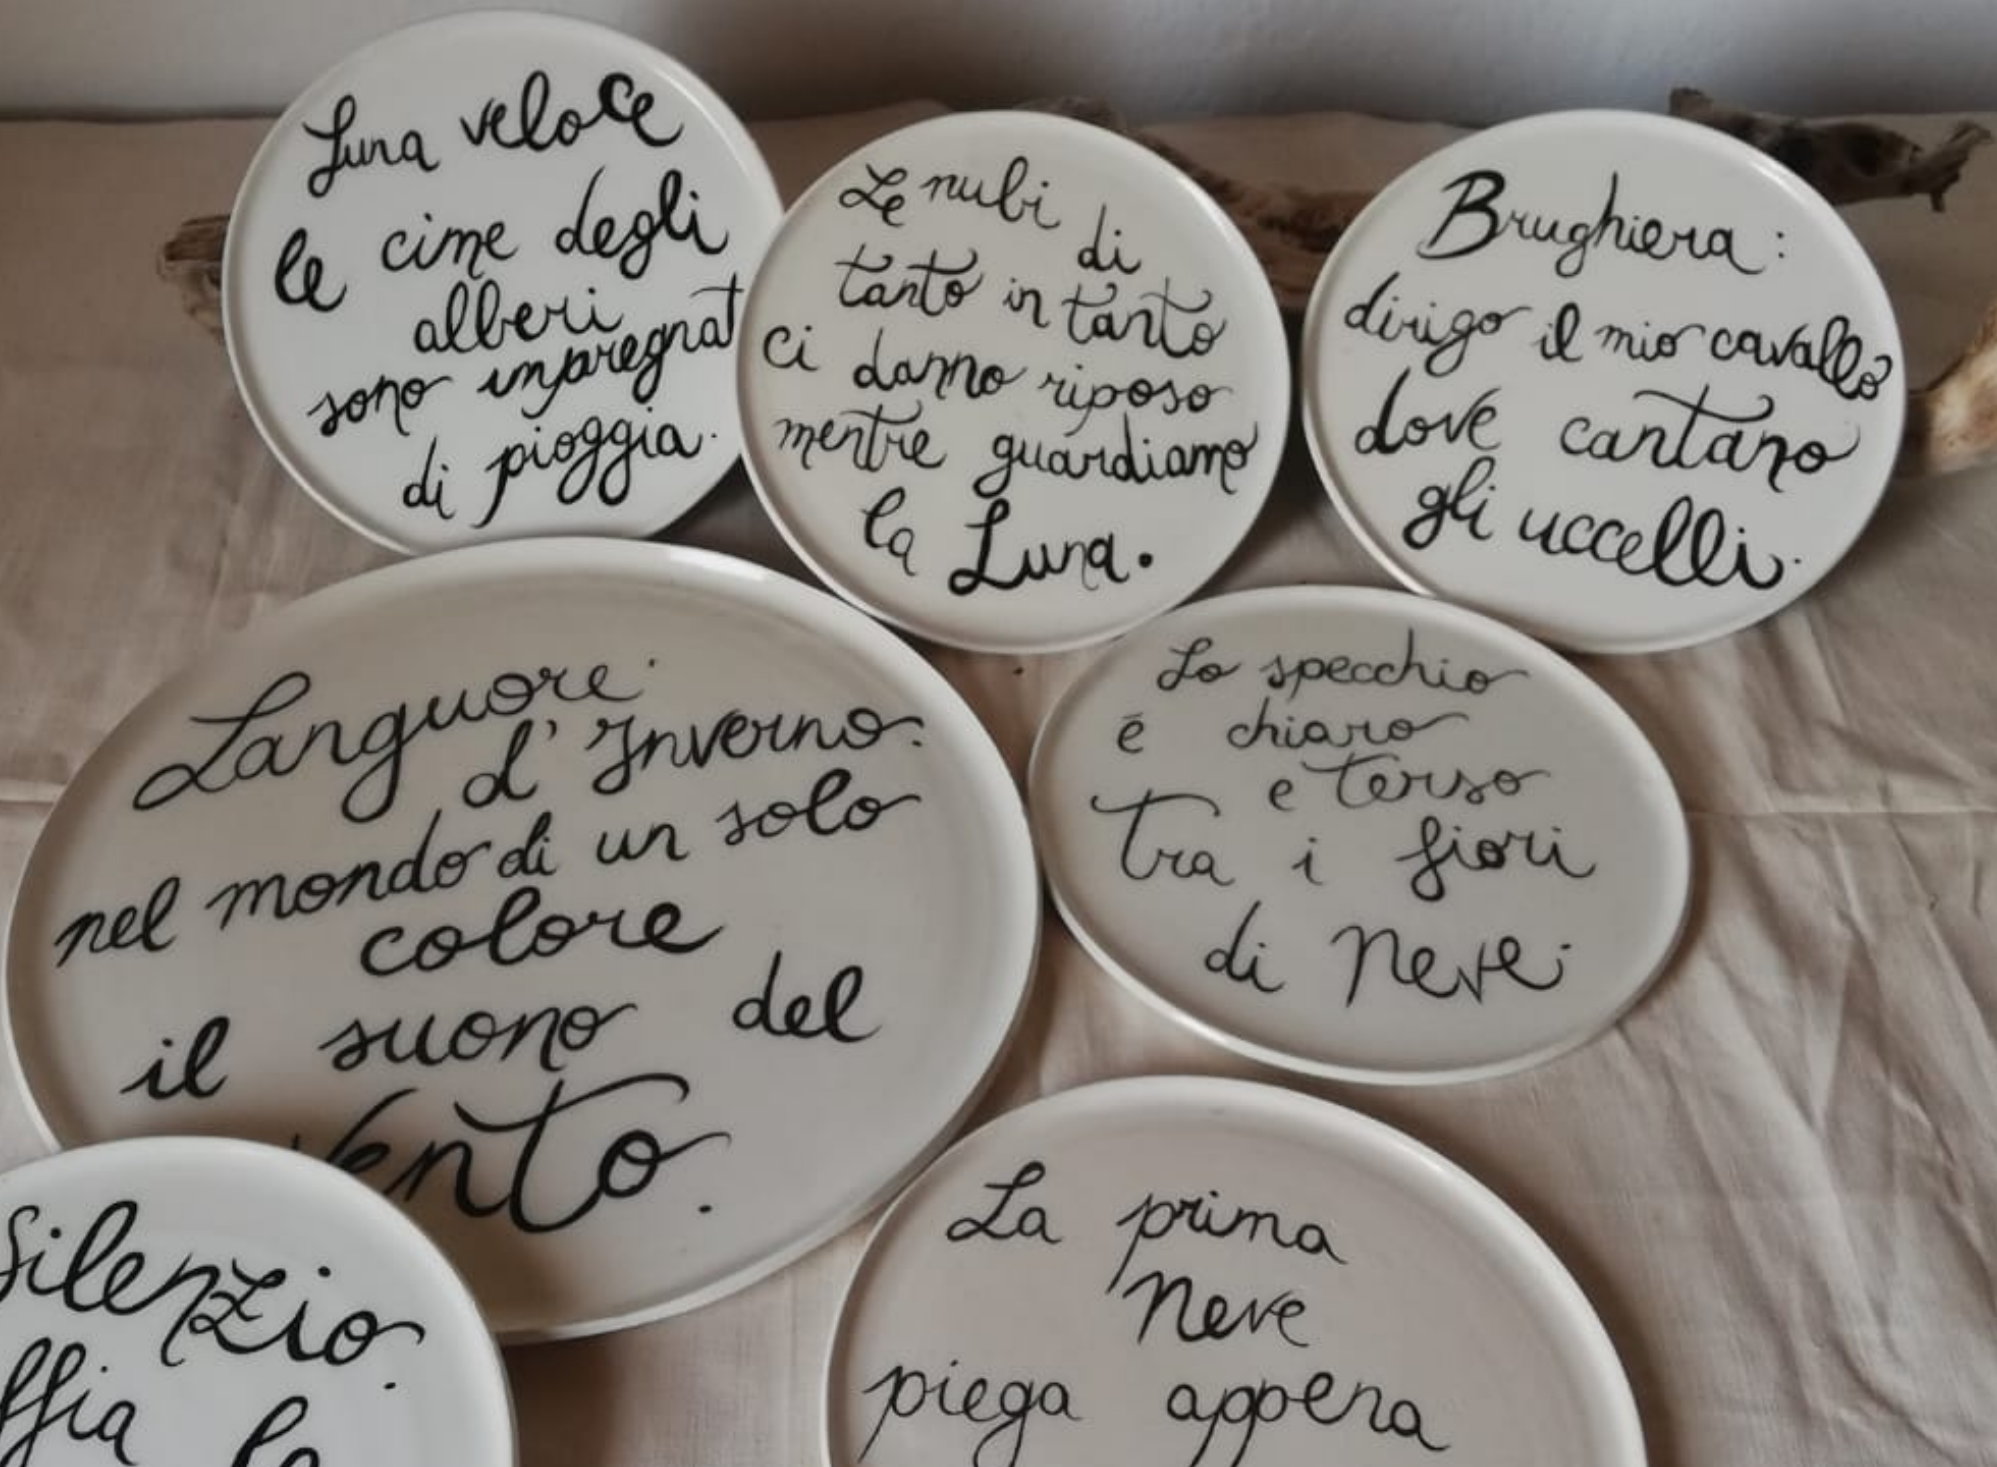 Luna veloce
le cime degli
alberi
sono impregnat
di pioggia.
Le nubi
di
tanto in tanto
ci danno riposo
mentre guardiamo
la Luna.
Brughiera:
dirigo il mio cavallo
dove cantano
gli uccelli.
Languore
d'Inverno:
nel mondo di un solo
colore
il suono del
vento.
Lo specchio
è chiaro
e terso
tra i fiori
di Neve.
Silenzio.
ffia le
La prima
Neve
piega appena